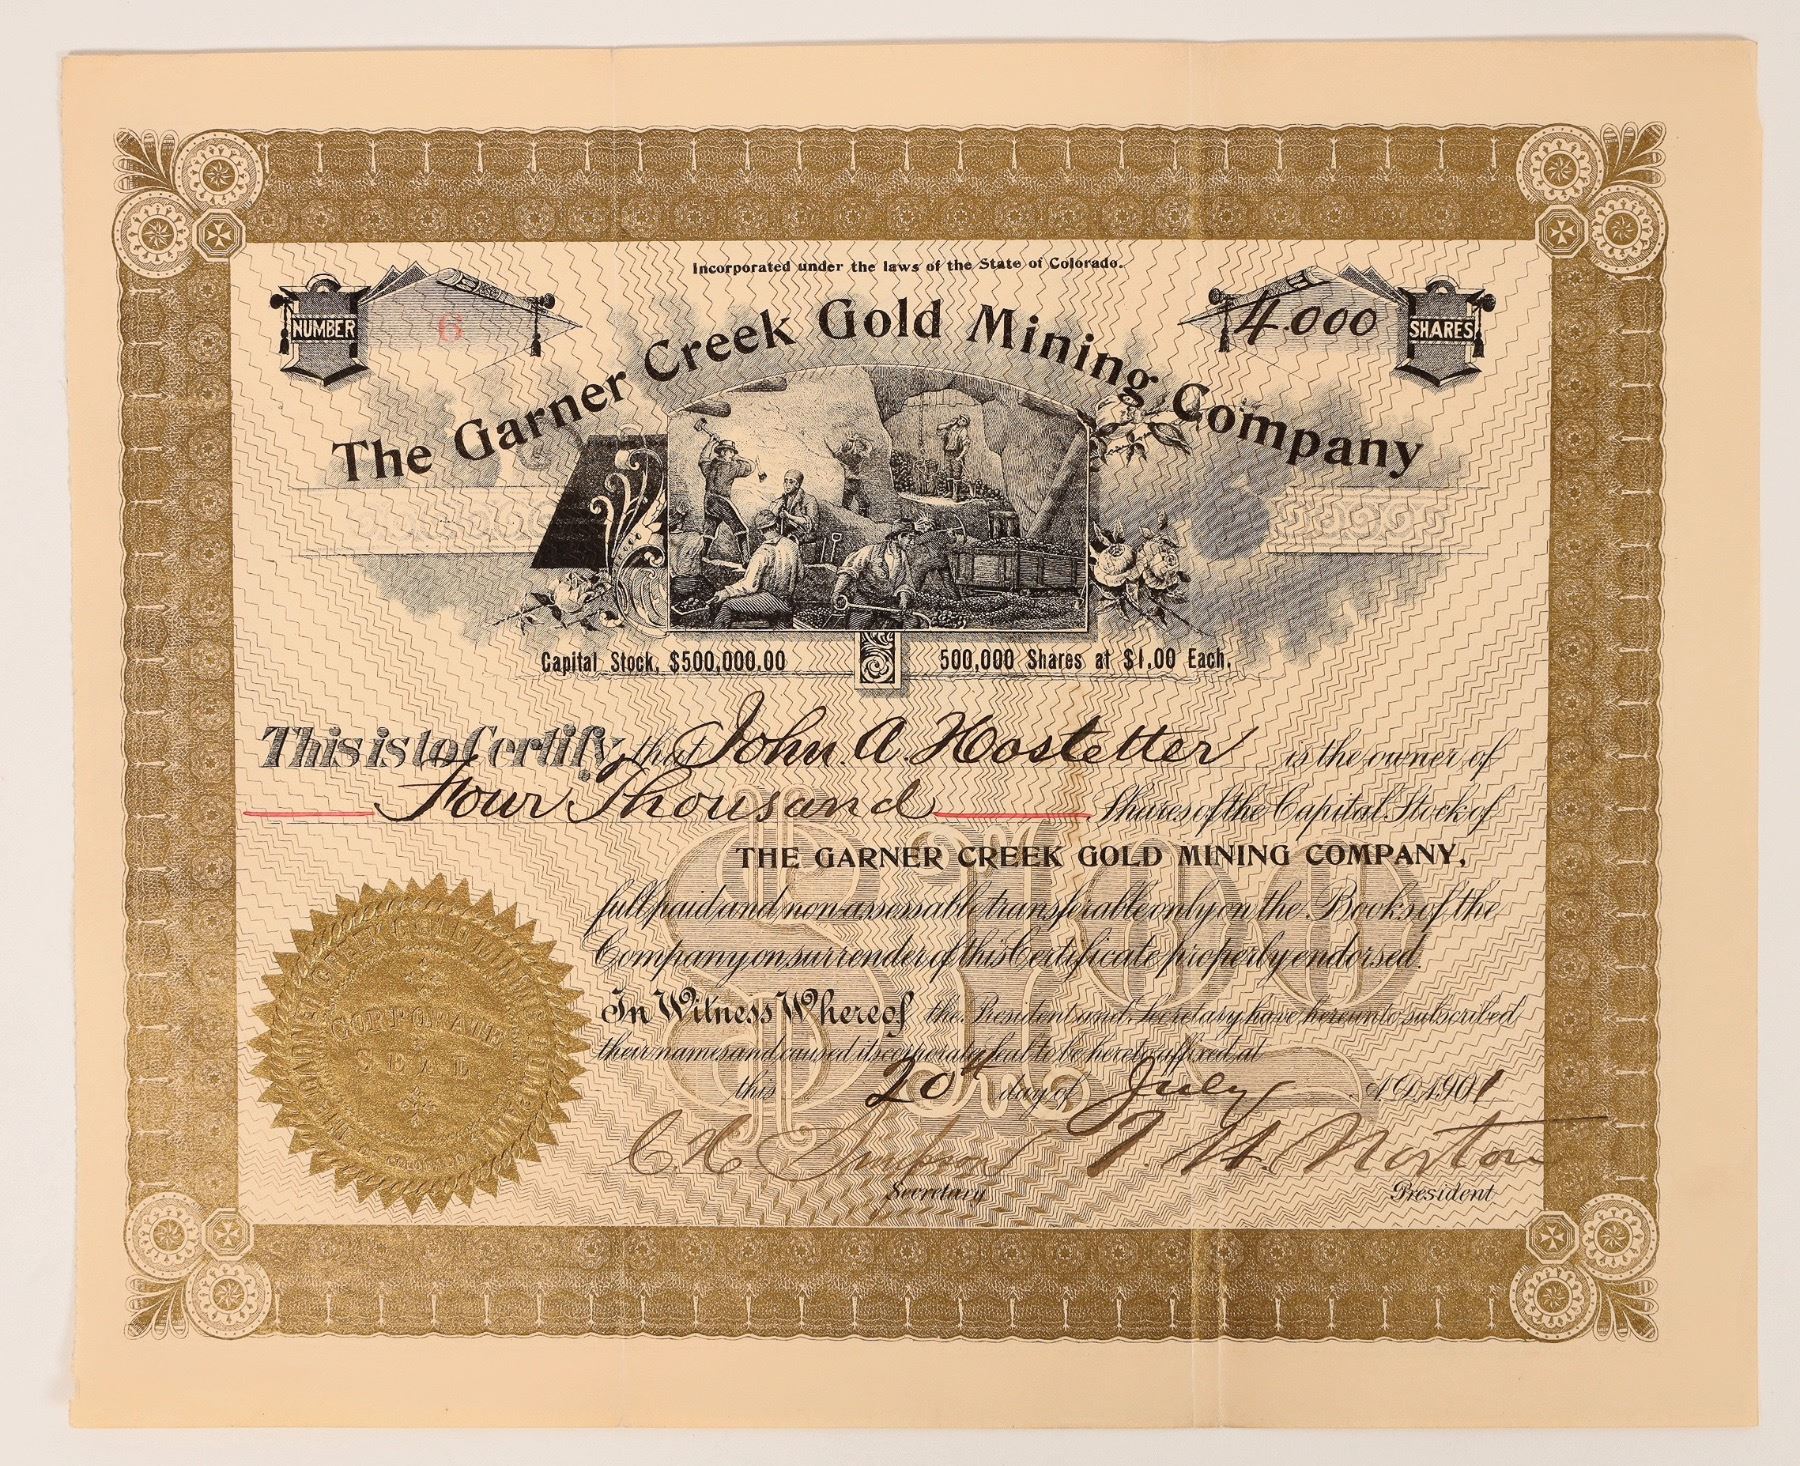 Incorporated under the laws of the State of Colorado.
NUMBER 6
4.000 SHARES
The Garner Creek Gold Mining Company
Capital Stock, $500,000.00 500,000 Shares at $1.00 Each.
This is to Certify, that John. A. Hostetter is the owner of
Four Thousand Shares of the Capital Stock of
THE GARNER CREEK GOLD MINING COMPANY,
full paid and non-assessable transferable only on the Books of the
Company on surrender of this Certificate properly endorsed.
In Witness Whereof the President and Secretary have hereunto subscribed
their names and caused its corporate seal to be hereto affixed at
this 20th day of July A.D. 1901
C. H. Simpson T. H. Norton
Secretary President
$1.00
CORPORATE
SEAL